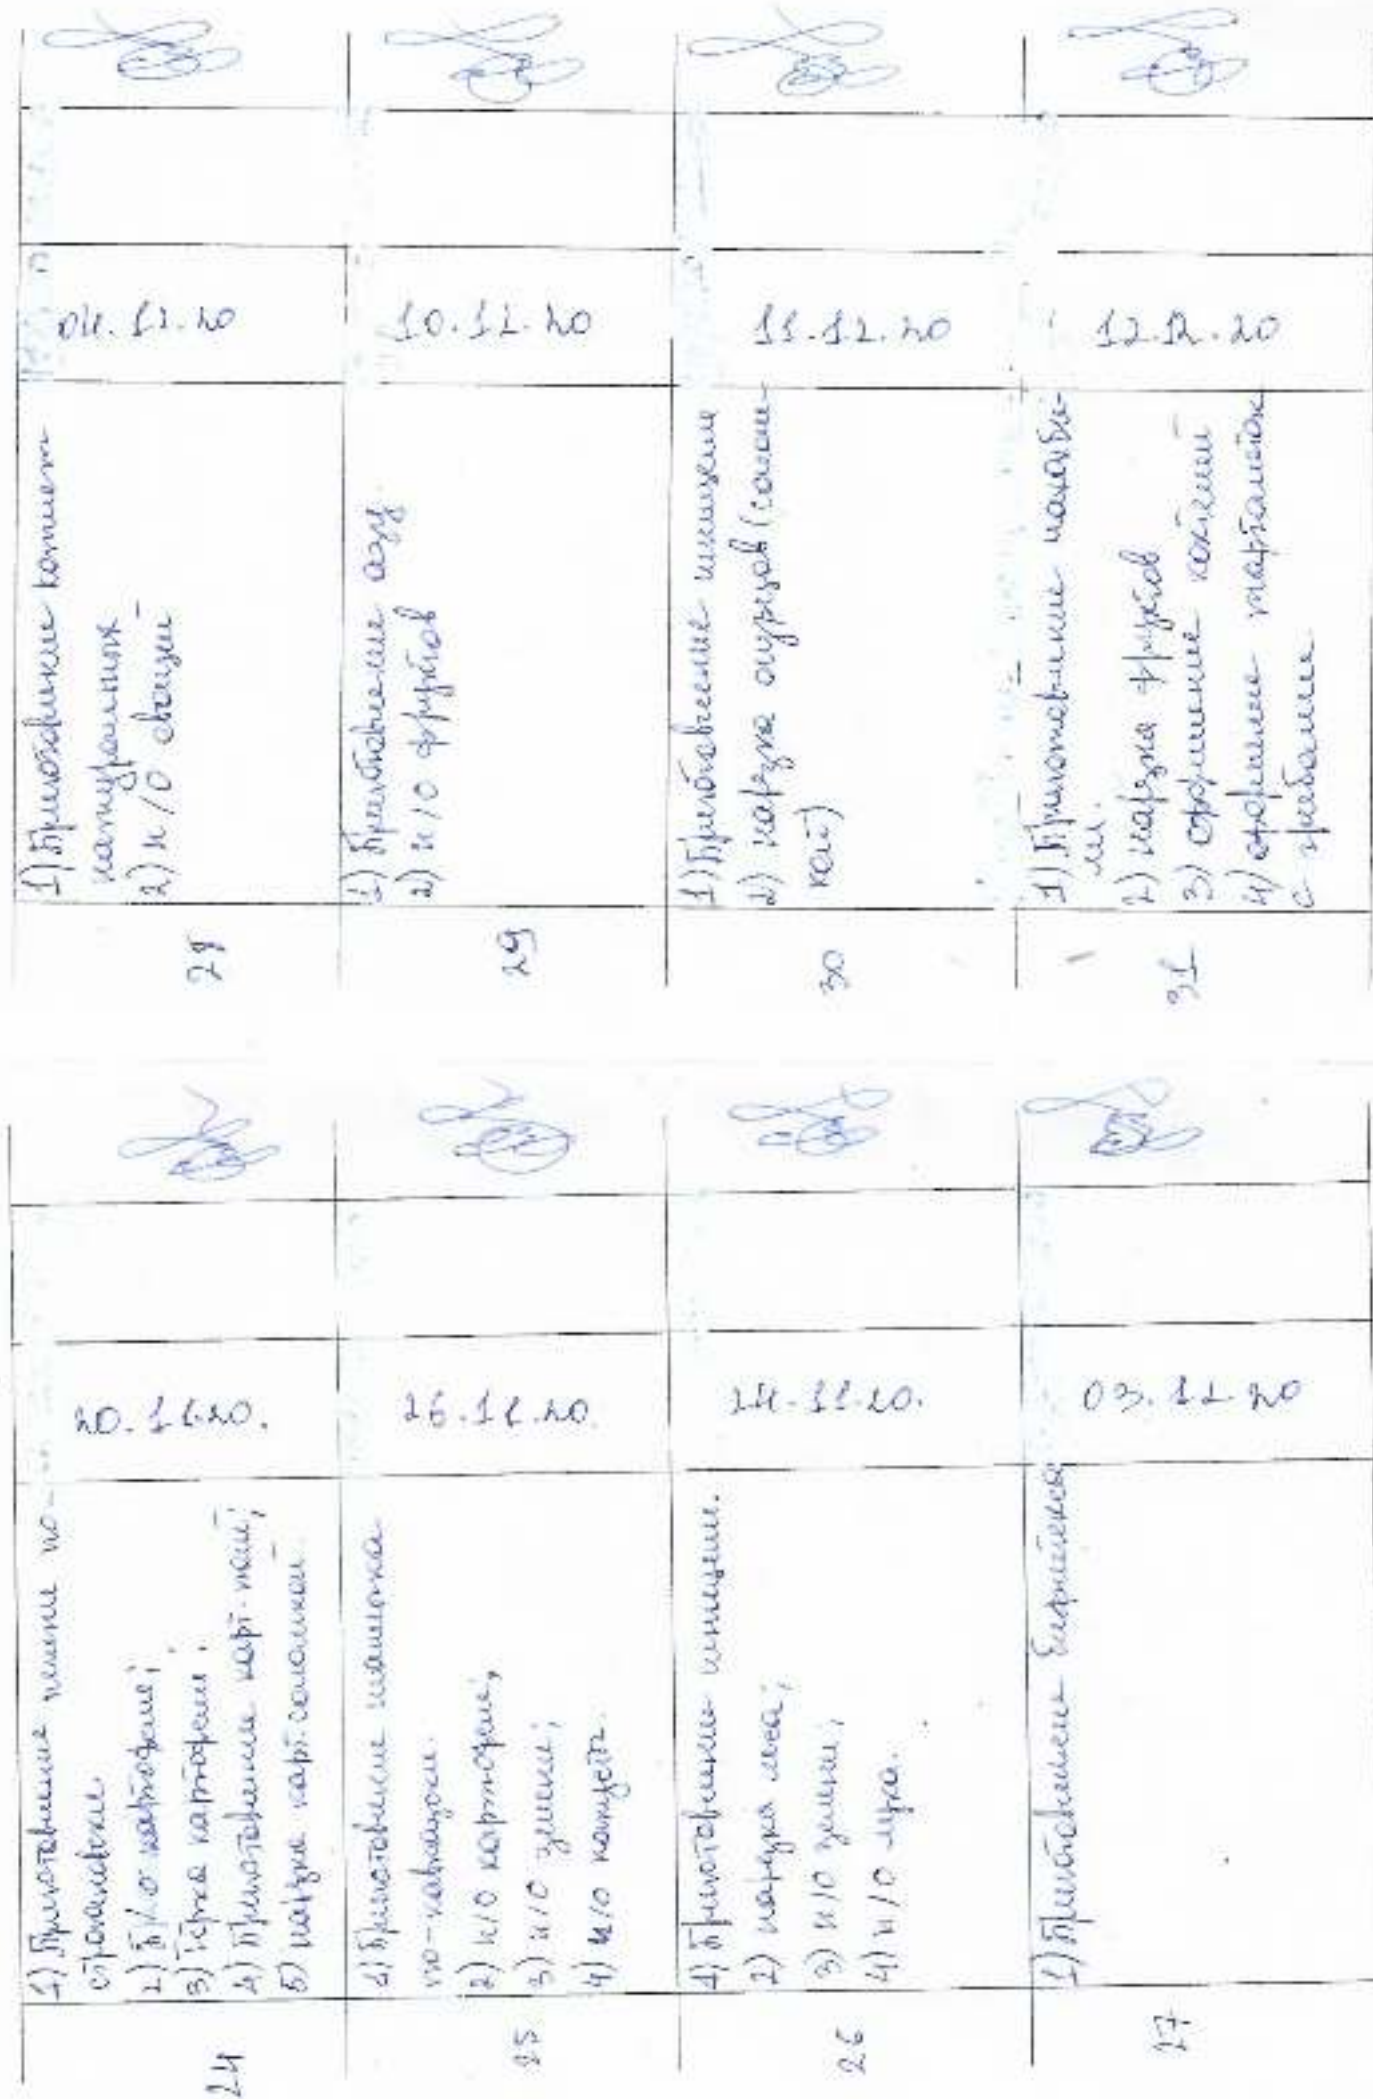 24
1) Приготовление печени по-
строгановски
2) П/О картофеля;
3) Терка картофеля;
4) Приготовление карт. пай;
5) нарезка карт. соломкой.
20.11.20.
25
1) Приготовление шашлыка
по-кавказски.
2) м/о картофеля;
3) м/о зелени;
4) м/о капусты.
26.11.20.
26
1) Приготовление шницеля.
2) нарезка мяса;
3) м/о зелени;
4) м/о лука.
27
1) Приготовление бифштекса
03.12.20
28
1) Приготовление котлет
натуральных
2) м/о овощей
04.12.20
29
1) Приготовление азу
2) м/о фруктов
10.12.20
30
1) Приготовление шницеля
2) нарезка огурцов (солом-
кой)
11.12.20
31
1) Приготовление
2) нарезка фруктов
3)
4) тарталеток
с грибами
12.12.20